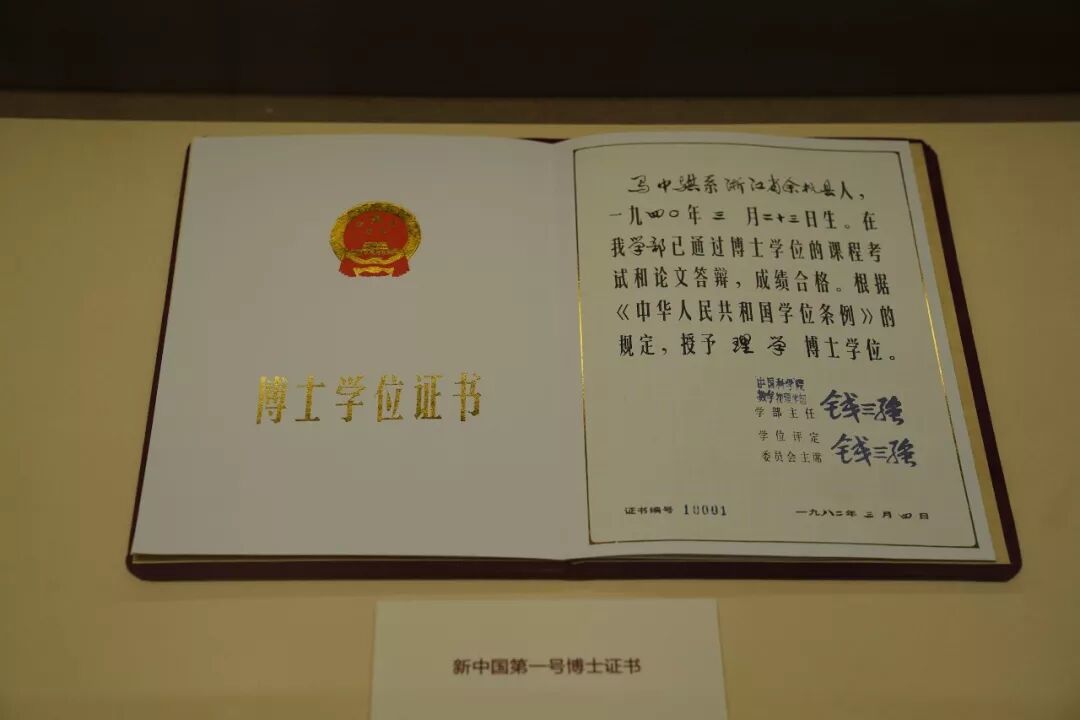 博士学位证书
马中骐系浙江省余杭县人，
一九四〇年三月二十三日生。在
我学部已通过博士学位的课程考
试和论文答辩，成绩合格。根据
《中华人民共和国学位条例》的
规定，授予理学博士学位。
中国科学院
数学物理学部
学部主任 钱三强
学位评定
委员会主席 钱三强
证书编号 10001 一九八二年三月四日
新中国第一号博士证书